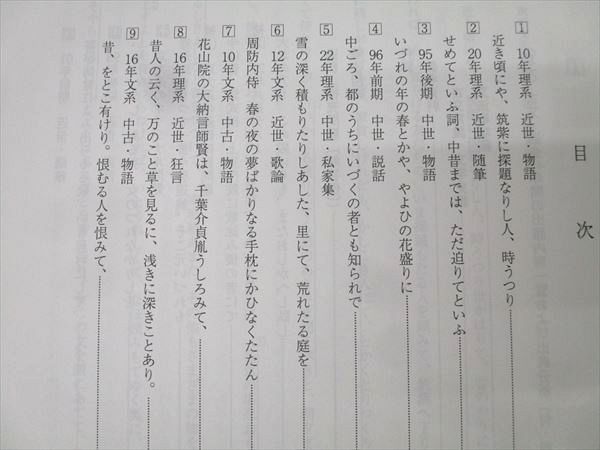 目次
1 10年理系 近世・物語
近き頃にや、筑紫に探題なりし人、時うつり……………
2 20年理系 近世・随筆
せめてといふ詞、中昔までは、ただ迫りてといふ……………
3 95年後期 中世・物語
いづれの年の春とかや、やよひの花盛りに……………
4 96年前期 中世・説話
中ごろ、都のうちにいづくの者とも知られで……………
5 22年理系 中世・私家集
雪の深く積もりたりしあした、里にて、荒れたる庭を……………
6 12年文系 近世・歌論
周防内侍 春の夜の夢ばかりなる手枕にかひなくたたん……………
7 10年文系 中古・物語
花山院の大納言師賢は、千葉介貞胤うしろみて、……………
8 16年理系 近世・狂言
昔人の云く、万のこと草を見るに、浅きに深きことあり。……………
9 16年文系 中古・物語
昔、をとこ有けり。恨むる人を恨みて、……………